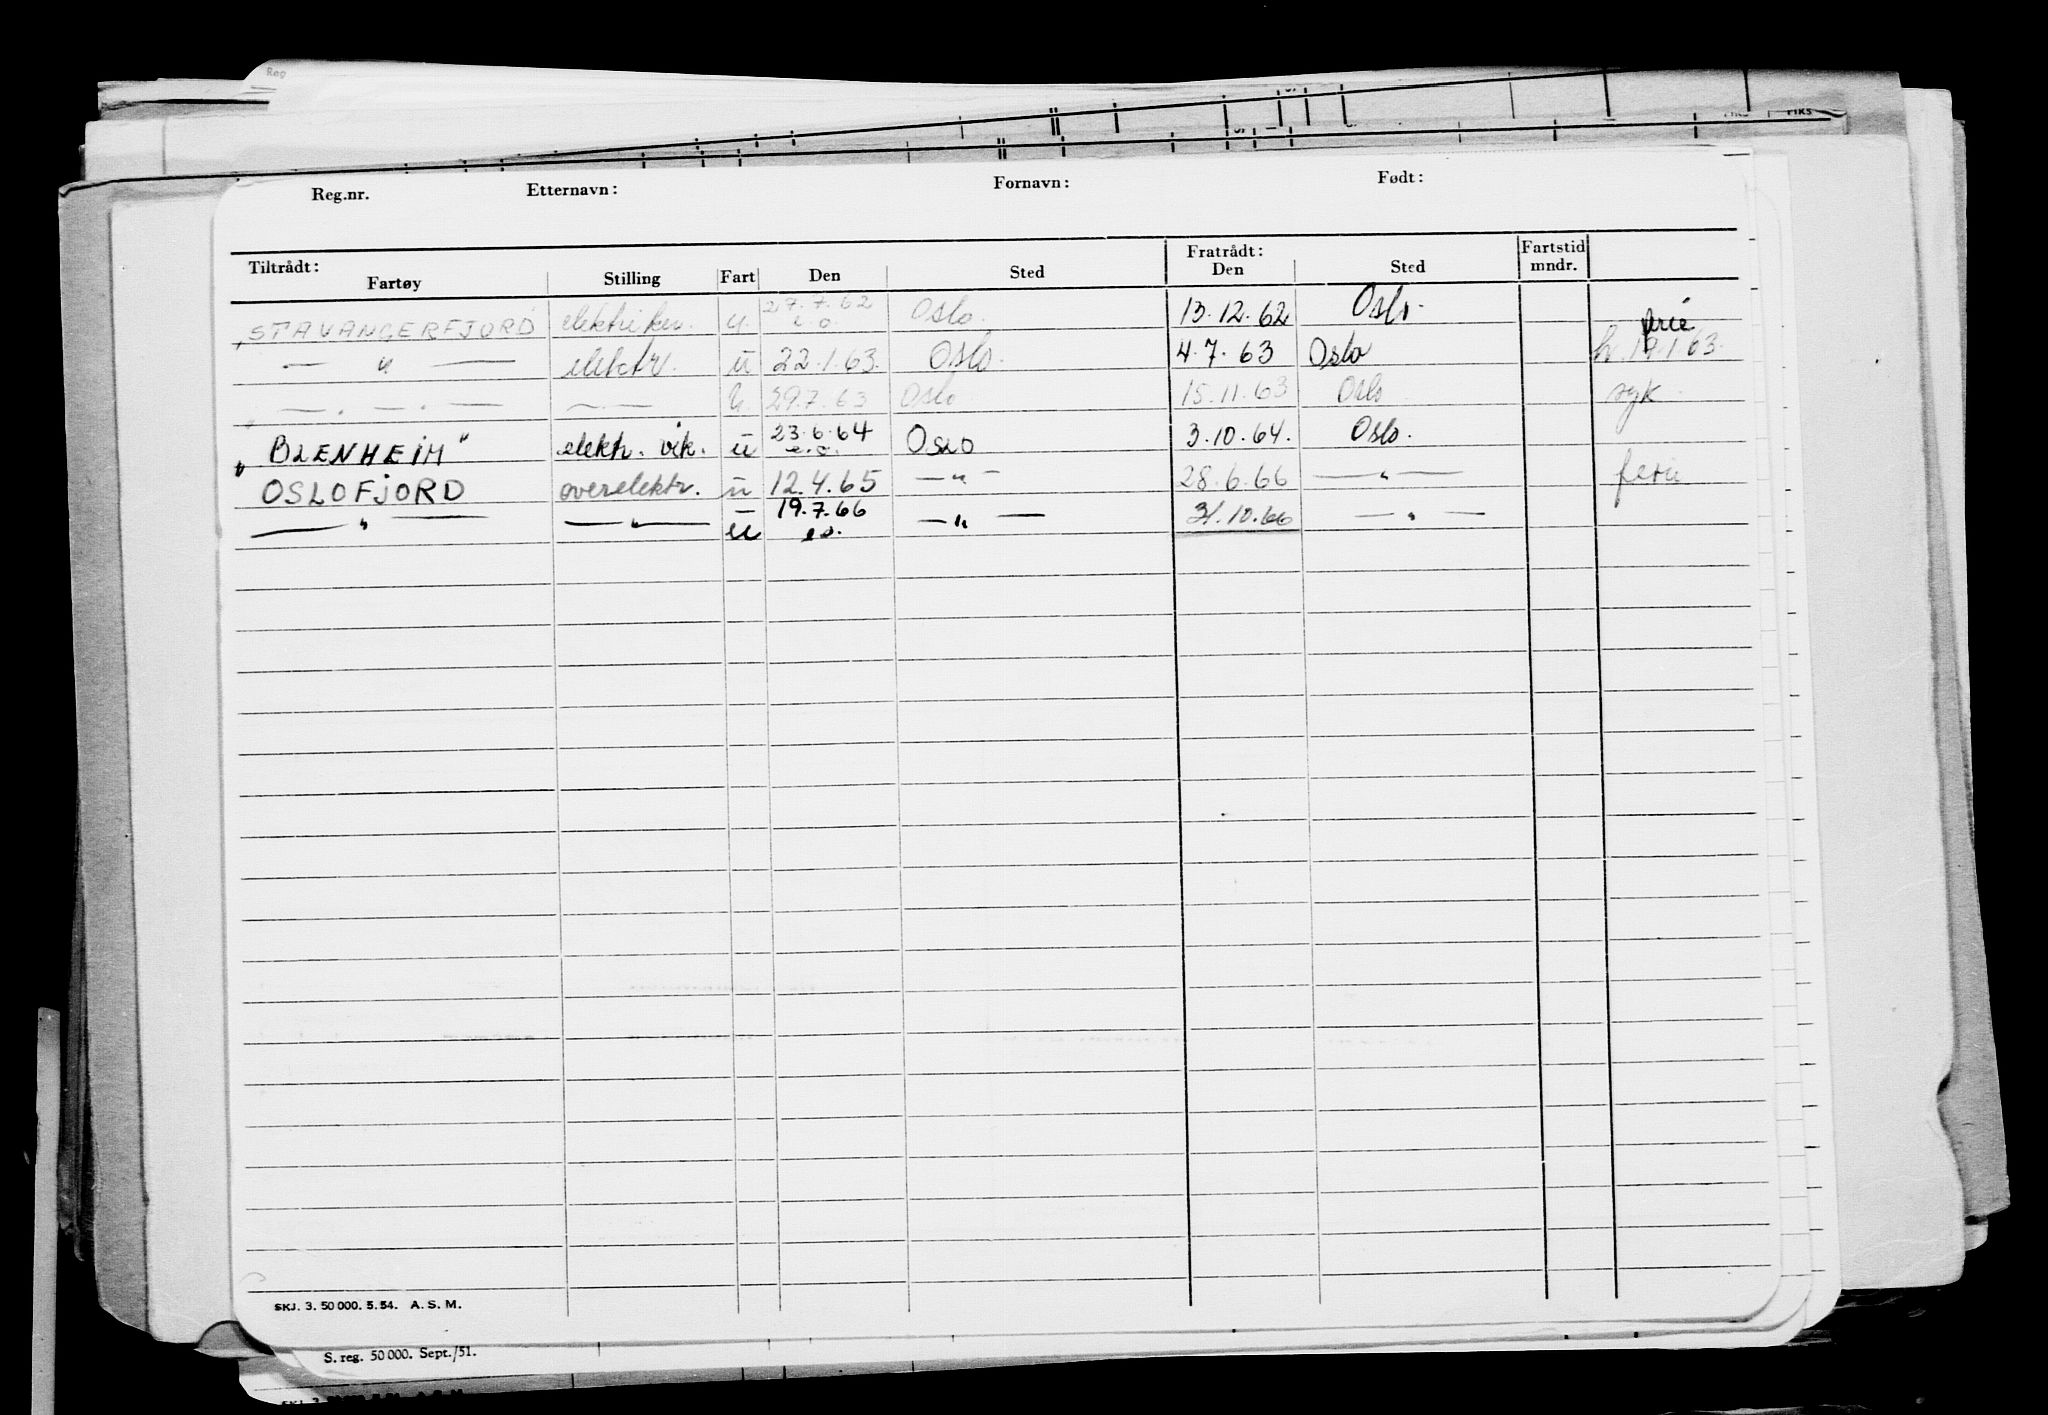 Reg
FIKS FIKS
Reg.nr. Etternavn: Fornavn: Født:
Tiltrådt: Fratrådt: Fartstid
Fartøy Stilling Fart Den Sted Den Sted mndr.
27.7.62
"STAVANGERFJORD elektriker. u. e.o. Oslo. 13.12.62 Oslo.
ferie
— " — elektr. u 22.1.63. Oslo. 4.7.63 Oslo h. 19.1.63.
— . — . — — . — u 29.7.63 Oslo 15.11.63 Oslo syk.
23.6.64
"BLENHEIM" elektr. vik. u e.o. Oslo 3.10.64. Oslo.
OSLOFJORD overelektr. u 12.4.65 — " — 28.6.66 — " — ferie
19.7.66
— " — — " — u e.o. — " — 31.10.66 — " —
SKJ. 3. 50 000. 5. 54. A. S. M.
S. reg. 50 000. Sept./51.